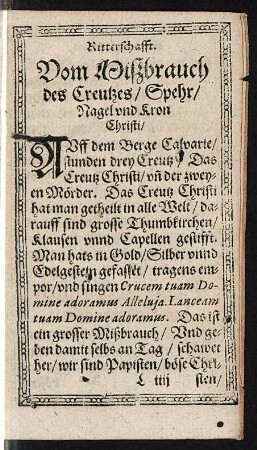 Ritterschafft.
Vom Mißbrauch
des Creutzes / Spehr /
Nagel vnd Kron
Christi /
AVff dem Berge Calvarie /
stunden drey Creutz / Das
Creutz Christi / vñ der zwey-
en Mörder. Das Creutz Christi
hat man getheilt in alle Welt / da-
rauff sind grosse Thumbkirchen /
Klausen vnnd Capellen gestifft.
Man hats in Gold / Silber vnnd
Edelgestein gefasset / tragens em-
por / vnd singen Crucem tuam Do-
mine adoramus Alleluja. Lanceam
tuam Domine adoramus. Das ist
ein grosser Mißbrauch / Vnd ge-
ben damit selbs an Tag / schawet
her / wir sind Papisten / böse Chri-
L iiij sten /